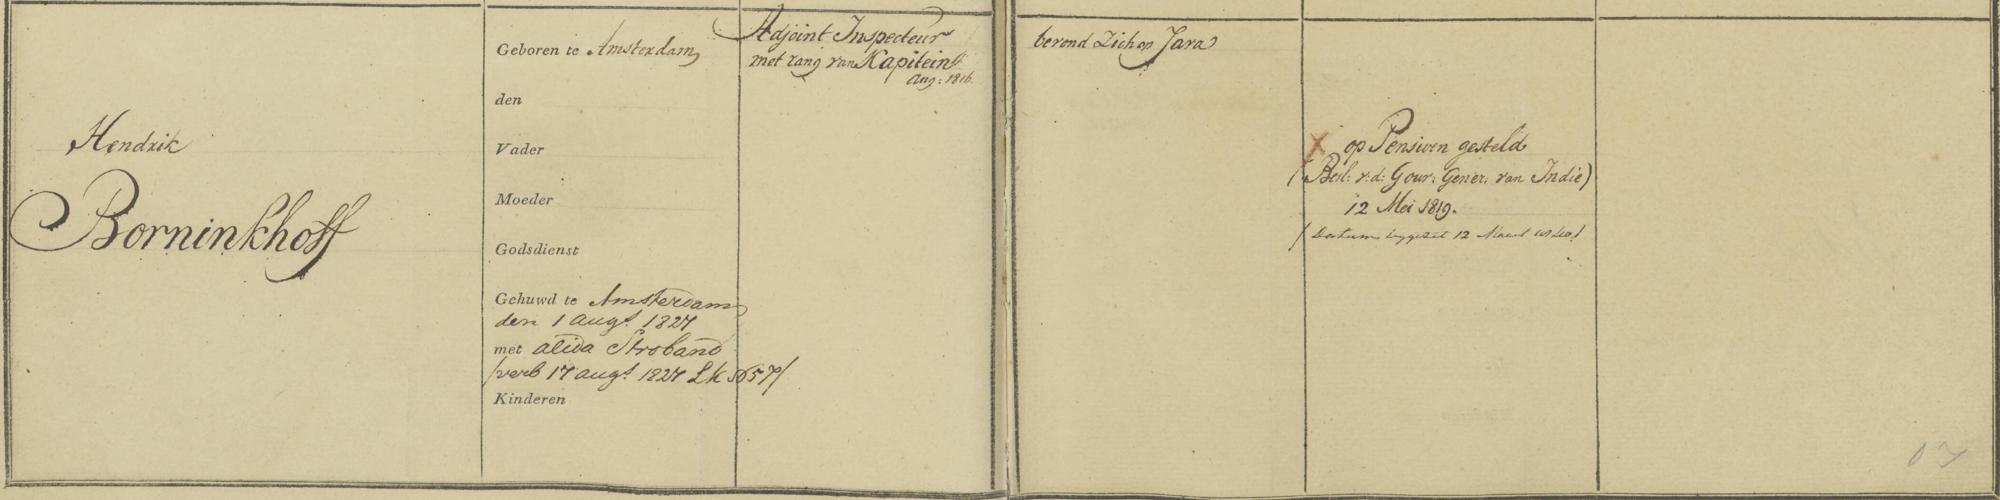 Hendrik
Borninkhoff
Geboren te Amsterdam
den
Vader
Moeder
Godsdienst
Gehuwd te Amsterdam
den 1 augt. 1827
met alida Stroband
/verb 17 augt. 1827 Lk 5657/
Kinderen
Adjoint Inspecteur
met rang van Kapitein
Aug: 1816.
berond Zich op Java
X op Pensioen gesteld
(Besl: v:d: Gour: Gener: van Indie)
12 Mei 1819.
/ Datum 12 Maart /